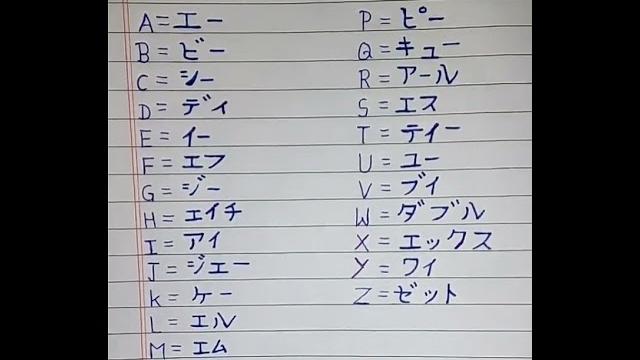 A = エー
B = ビー
C = シー
D = ディ
E = イー
F = エフ
G = ジー
H = エイチ
I = アイ
J = ジェー
K = ケー
L = エル
M = エム
P = ピー
Q = キュー
R = アール
S = エス
T = ティー
U = ユー
V = ブイ
W = ダブル
X = エックス
Y = ワイ
Z = ゼット